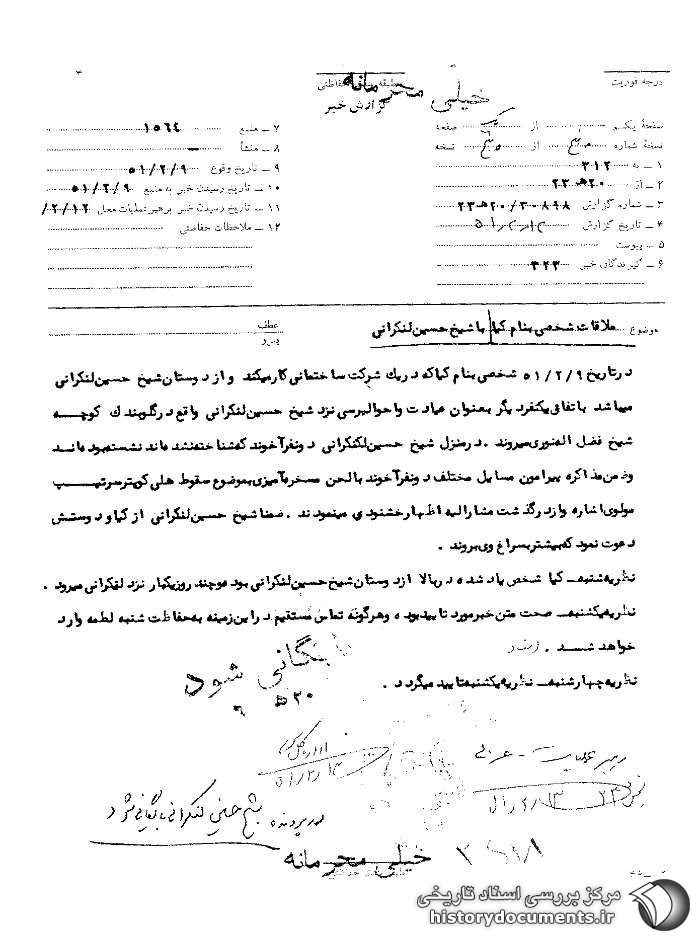 درجه فوریت
طبقه بندی حفاظتی
خیلی محرمانه
گزارش خبر
صفحهٔ یکم از یک صفحه
نسخهٔ شماره از نسخه
۱ ـ به ۳۱۲
۲ ـ از ۲۰هـ ۲۳
۳ ـ شماره گزارش ۲۳هـ۲۰/۳۰۸۹۸
۴ ـ تاریخ گزارش ۵۱/۲/۱۲
۵ ـ پیوست
۶ ـ گیرندگان خبر ۳۲۳
۷ ـ منبع ۱۵۶٤
۸ ـ منشأ ـ
۹ ـ تاریخ وقوع ۵۱/۲/۹
۱۰ ـ تاریخ رسیدن خبر به منبع ۵۱/۲/۹
۱۱ ـ تاریخ رسیدن خبر برهبر عملیات محل /۲/۱۲
۱۲ ـ ملاحظات حفاظتی
موضوع ملاقات شخصی بنام کیا با شیخ حسین لنکرانی
عطف
پیرو
در تاریخ ۵۱/۲/۹ شخصی بنام کیا که در یك شرکت ساختمانی کار میکند و از دوستان شیخ حسین لنکرانی
میباشد با تفاق یکنفر دیگر بعنوان عیادت و احوالپرسی نزد شیخ حسین لنکرانی واقع در گلوبندك کوچه
شیخ فضل اله نوری میروند . در منزل شیخ حسین لنکرانی دو نفر آخوند که شناخته نشده اند نشسته بوده اند
و ضمن مذاکره پیرامون مسایل مختلف دو نفر آخوند با لحن مسخره آمیزی بموضوع سقوط هلی کوپتر سرتیپ
مولوی اشاره و از درگذشت مشارالیه اظهار خشنودی مینمودند . ضمنا شیخ حسین لنکرانی از کیا و دوستش
دعوت نمود که بیشتر بسراغ وی بروند .
نظریه شنبه ـ کیا شخص یاد شده در بالا از دوستان شیخ حسین لنکرانی بوده و چند روز یکبار نزد لنکرانی میرود .
نظریه یکشنبه ـ صحت متن خبر مورد تایید بوده و هرگونه تماس مستقیم در این زمینه به حفاظت شنبه لطمه وارد
خواهد شد .
نظریه چهارشنبه ـ نظریه یکشنبه تایید میگردد .
بایگانی شود
۲۰ هـ
رهبر عملیات ـ
۵۱/۲/۱۳
در پرونده شیخ حسین لنکرانی بایگانی شود
خیلی محرمانه
مرکز بررسی اسناد تاریخی
historydocuments.ir